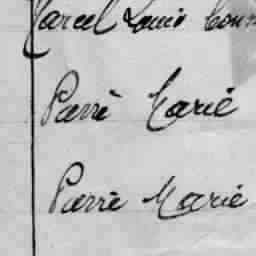 Marcel Louis
Pierre Marie
Pierre Marie